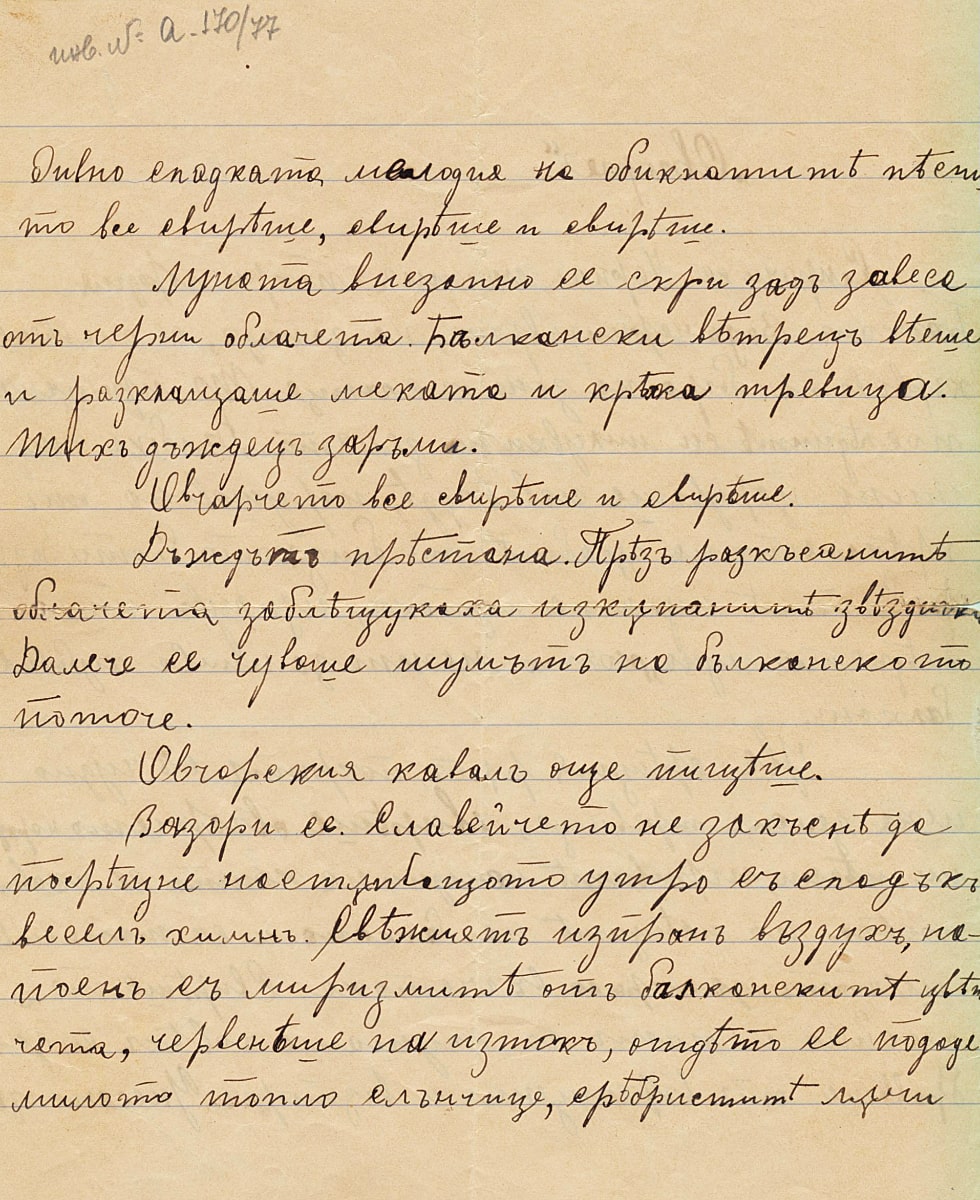 инв. № А-170/77
Дивно сладката мелодия на обикнатитѣ пѣсни
то все свирѣше, свирѣше и свирѣше.
Луната внезапно се скри задъ завеса
отъ черни облачета. Балкански вѣтрецъ вѣеше
и разклащаше меката и крѣхка тревица.
Тихъ дъждецъ заръми.
Овчарчето все свирѣше и свирѣше.
Дъждътъ прѣстана. Прѣзъ разкъсанитѣ
облачета заблѣщукаха изкъпанитѣ звѣздички
Далече се чуваше шумътъ на балканското
поточе.
Овчарския кавалъ още пищѣше.
Зазори се. Славейчето не закъснѣ да
посрѣщне настѫпващото утро съ сладъкъ
веселъ химнъ. Свѣжиятъ изпранъ въздухъ, на-
поенъ съ миризмитѣ отъ балканскитѣ цвѣ-
чета, червенѣше на изтокъ, отдѣто се подаде
милото топло слънчице, срѣбриститѣ лъчи